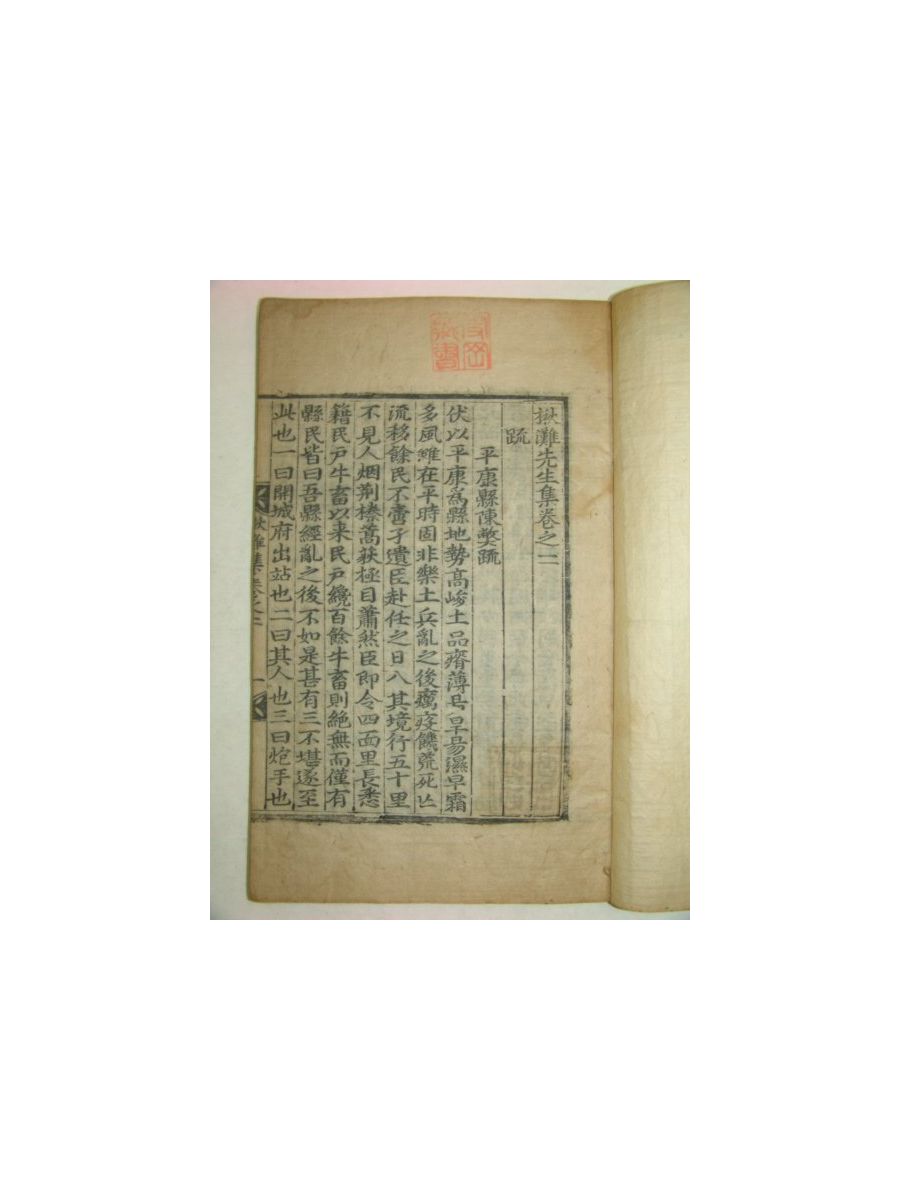 楸灘先生集卷之二
疏
平康縣陳弊疏
伏以平康爲縣地勢高峻土品瘠薄易旱易濕早霜
多風雖在平時固非樂土兵亂之後癘疫饑荒死亡
流移餘民不啻孑遺臣赴任之日入其境行五十里
不見人烟荆榛蒿荻極目蕭然臣即令四面里長悉
籍民戸牛畜以来民戸纔百餘牛畜則絶無而僅有
縣民皆曰吾縣經亂之後不如是甚有三不堪遂至
此也一曰開城府出站也二曰其人也三曰炮手也
楸灘集卷之二
一
藏書